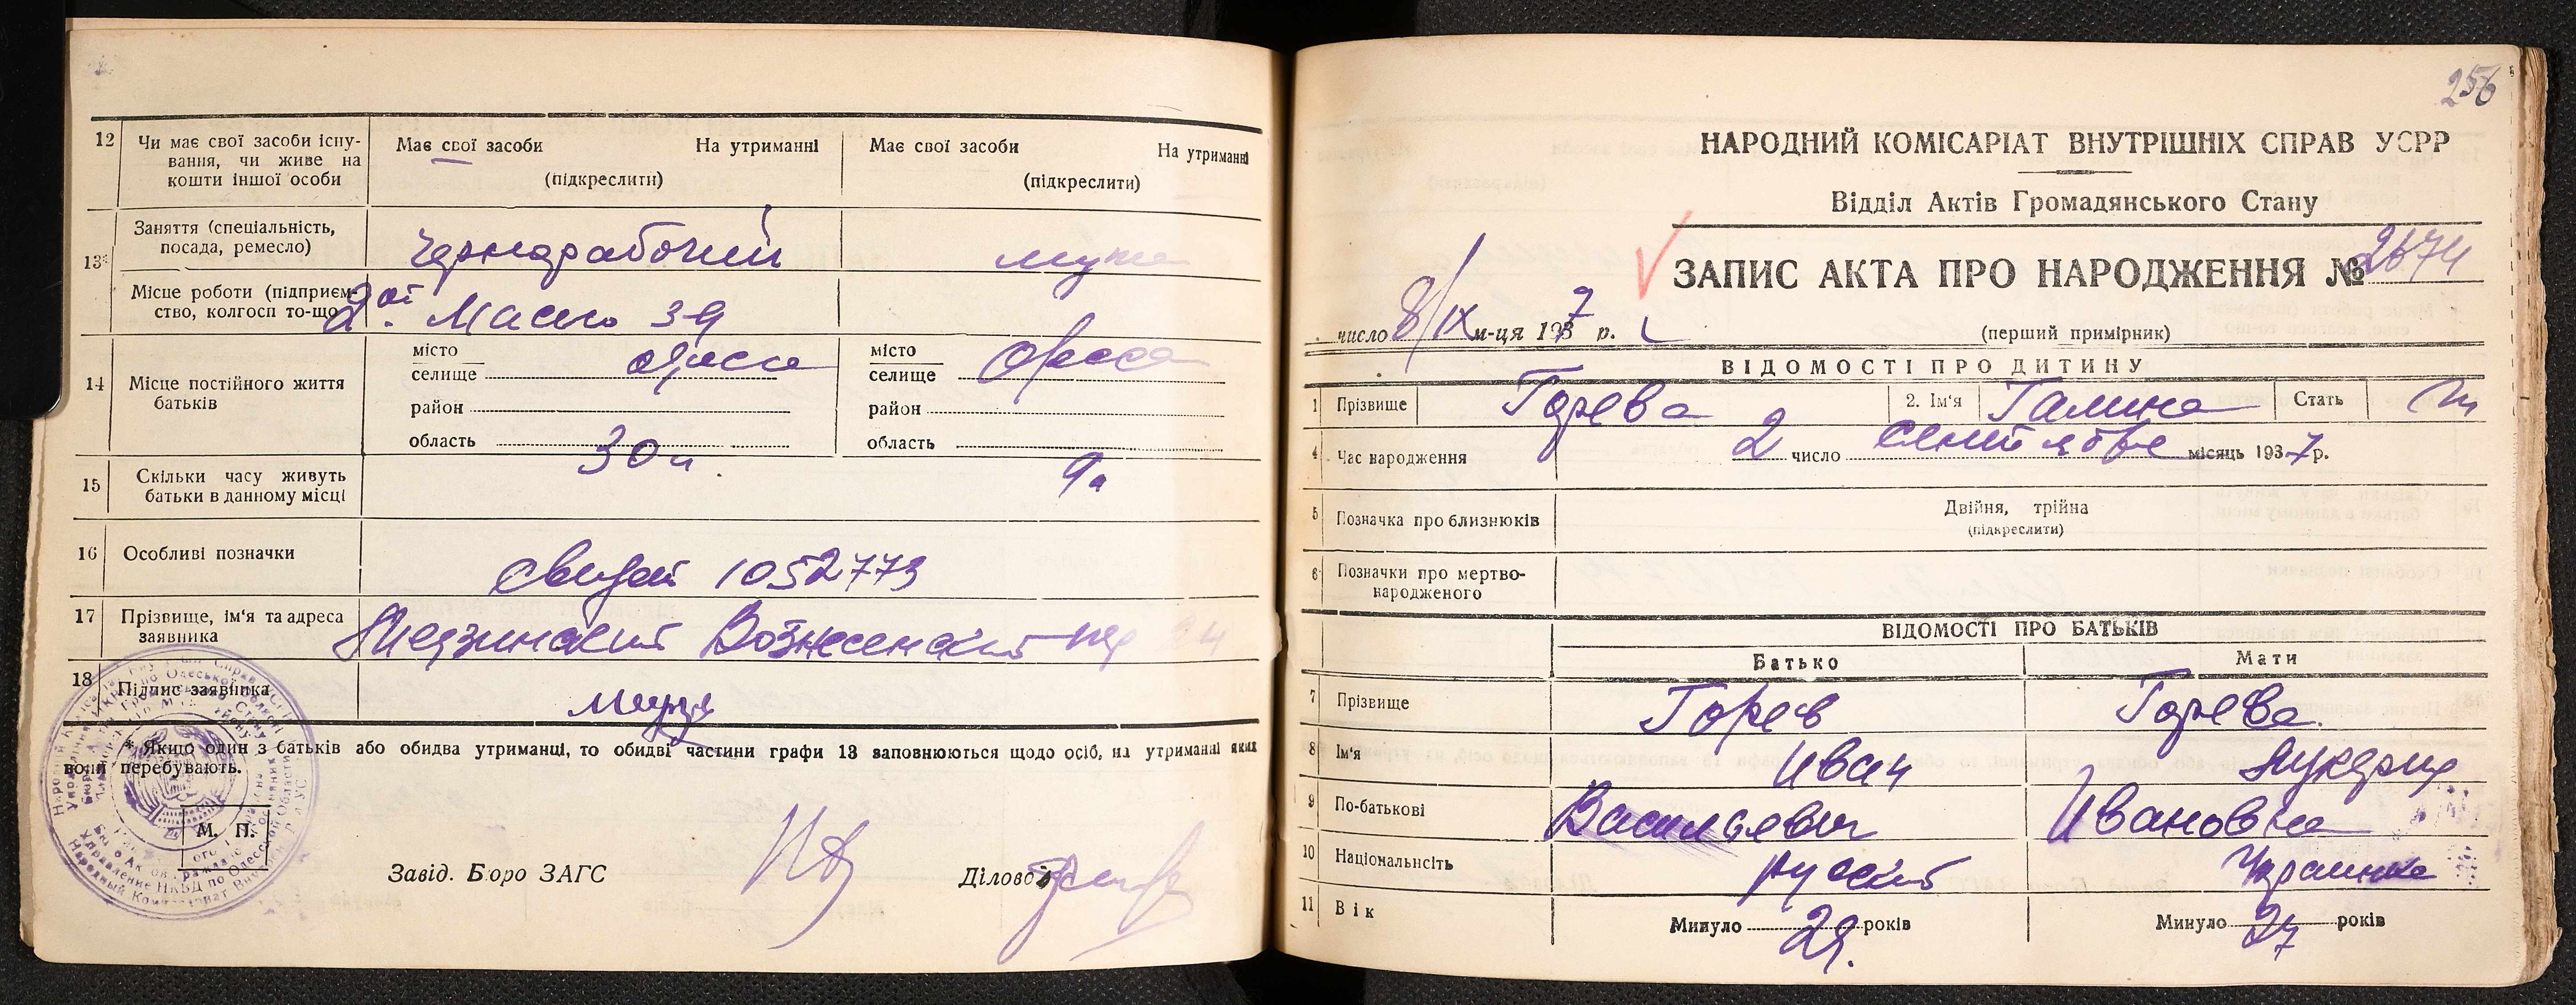 12 Чи має свої засоби існу-
вання, чи живе на
кошти іншої особи
Має свої засоби На утриманні
(підкреслити)
Має свої засоби На утриманні
(підкреслити)
13* Заняття (спеціальність,
посада, ремесло)
Чернорабочий
мужа
Місце роботи (підприєм-
ство, колгосп то-що)
14 Місце постійного життя
батьків
місто
селище Одесса
район
область
місто
селище Одесса
район
область
15 Скільки часу живуть
батьки в данному місці
16 Особливі позначки
свидет 1052773
17 Прізвище, ім'я та адреса
заявника
Вознесенский пер
18 Підпис заявника
* Якщо один з батьків або обидва утриманці, то обидві частини графи 13 заповнюються щодо осіб, на утриманні яких
вони перебувають.
М. П.
Завід. Бюро ЗАГС
Діловод
256
НАРОДНИЙ КОМІСАРІАТ ВНУТРІШНІХ СПРАВ УСРР
Відділ Актів Громадянського Стану
ЗАПИС АКТА ПРО НАРОДЖЕННЯ № 2674
число 8/IX м-ця 1937 р.
(перший примірник)
ВІДОМОСТІ ПРО ДИТИНУ
1 Прізвище Горева 2. Ім'я Галина Стать
4 Час народження 2 число сентября місяць 1937 р.
5 Позначка про близнюків
Двійня, трійна
(підкреслити)
6 Позначки про мертво-
народженого
ВІДОМОСТІ ПРО БАТЬКІВ
Батько Мати
7 Прізвище Горев Горева
8 Ім'я Иван Лукерия
9 По-батькові Васильевич Ивановна
10 Національність русский Украинка
11 Вік Минуло 29 років Минуло 27 років